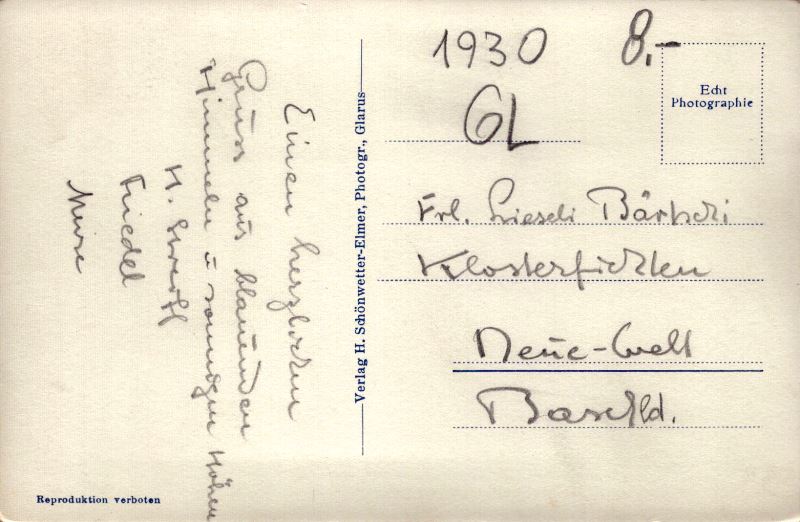 Einen herzlichen
Gruss aus blauenden
Himmeln u sonnigen Höhen
H.
Friedel
Verlag H. Schönwetter-Elmer, Photogr., Glarus
Reproduktion verboten
1930
8.-
GL
Echt
Photographie
Frl. Lieseli Bärtschi
Klosterfichten
Neue-Welt
Baselld.